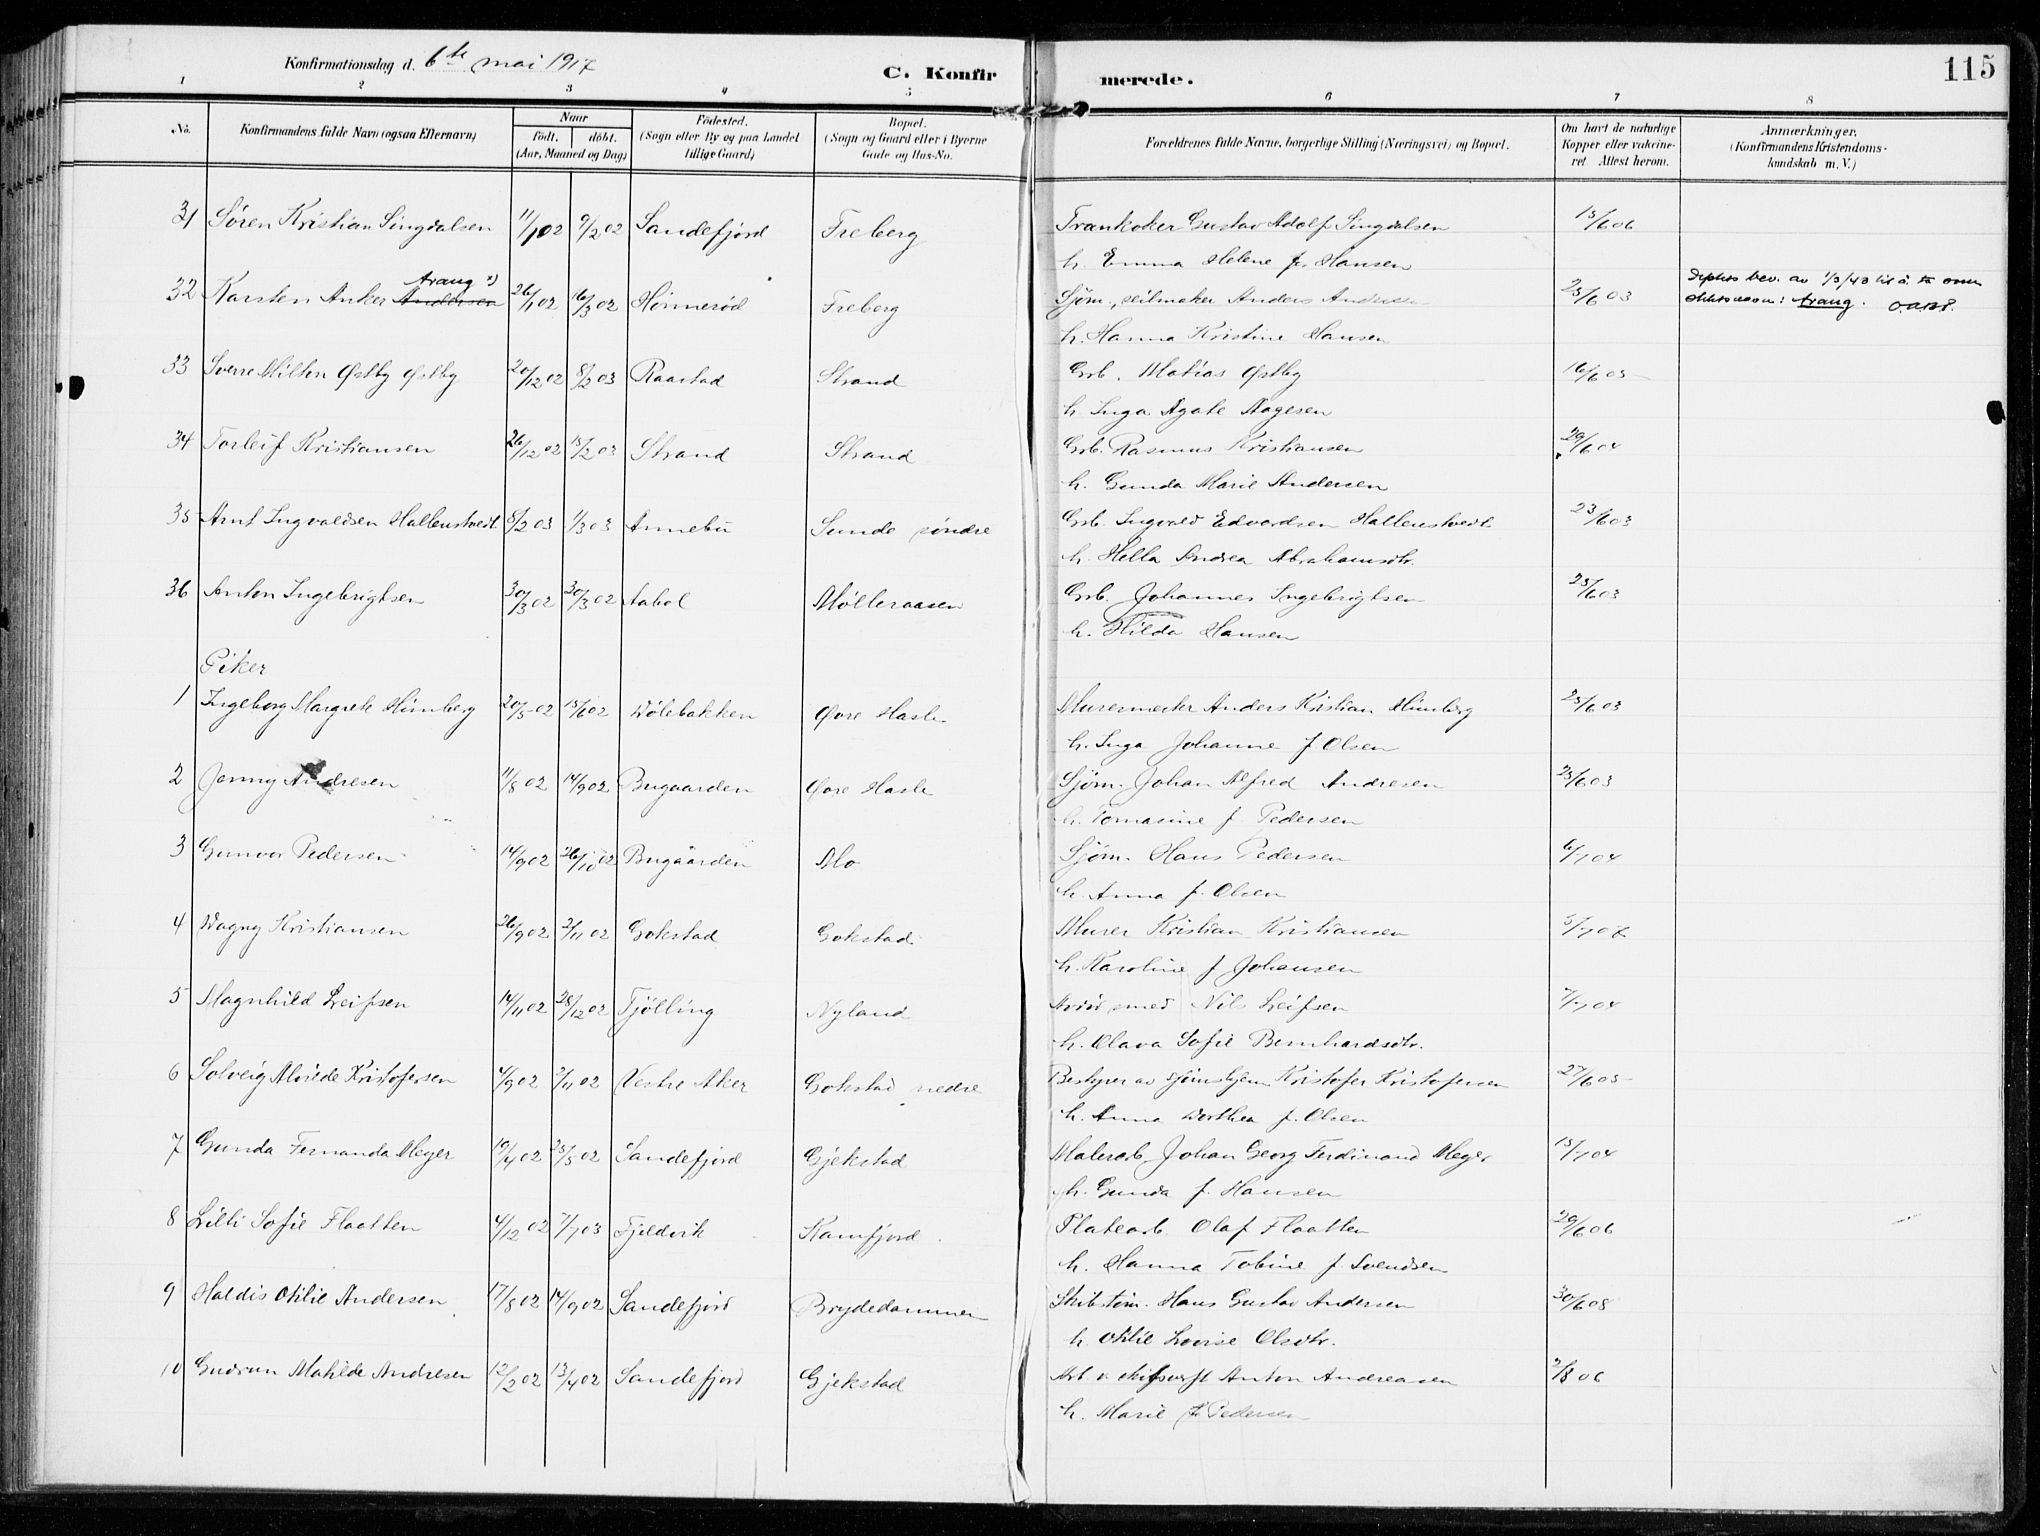 115
Konfirmationsdag d. 6te mai 1917
C. Konfirmerede.
1 2 3 4 5 6 7 8
No. Konfirmandens fulde Navn (ogsaa Efternavn) Naar födt. döbt. (Aar, Maaned og Dag) Födested. (Sogn eller By og paa Landet tillige Gaard) Bopæl. (Sogn og Gaard eller i Byerne Gade og Hus-No. Forældrenes fulde Navne, borgerlige Stilling (Næringsvei) og Bopæl. Om havt de naturlige Kopper eller vakcineret. Attest herom. Anmærkninger. (Konfirmandens Kristendomskundskab m. V.)
31 Søren Kristian Lingdalsen 11/1 02 9/2 02 Sandefjord Freberg Trankoker Gustav Adolf Lingdalsen 15/6 06
h. Emma Helene f. Hansen
32 Karsten Anker Andersen Araug x) 26/1 02 16/3 02 Hönneröd Freberg Sjøm., seilmaker Anders Andersen 25/6 03 bev. av 1/3/43 til å ta som slektsnavn: Araug.
h. Hanna Kristine Hansen
33 Sverre Milton Østby Østby 20/12 02 8/2 03 Raastad Strand Grb. Matias Østby 16/6 05
h. Inga Agate Aagesen
34 Torleif Kristiansen 26/12 02 15/2 03 Strand Strand Grb. Rasmus Kristiansen 29/6 04
h. Gunda Marie Andersen
35 Arnt Ingvaldsen Hallenstvedt 8/2 03 1/3 03 Annebu Sunde söndre Grb. Ingvald Edvardsen Hallenstvedt 23/6 03
h. Hella Andrea Abrahamsdtr.
36 Anton Ingebrigtsen 30/3 02 30/3 02 Aabol Mölleraasen Grb. Johannes Ingebrigtsen 25/6 03
h. Hilda Hansen
Piker
1 Ingeborg Margrete Himberg 20/5 02 15/6 02 Dölebakken Øvre Hasle Murermester Anders Kristian Himberg 25/6 03
h. Inga Johanne f Olsen
2 Jenny Andresen 11/8 02 14/9 02 Bugaarden Øvre Hasle Sjøm. Johan Alfred Andresen 25/6 03
h. Tomasine f Pedersen
3 Gunvor Pedersen 14/9 02 26/10 02 Bugaarden Mo Sjøm. Hans Pedersen 6/7 04
h. Anna f. Olsen
4 Dagny Kristiansen 26/9 02 2/11 02 Gokstad Gokstad Murer Kristian Kristiansen 5/7 07
h. Karoline f Johansen
5 Magnhild Leifsen 14/11 02 28/12 02 Tjölling Nyland smed Nils Leifsen 7/7 04
h. Olava Sofie Bernhardsdtr.
6 Solveig Alvilde Kristofersen 4/9 02 2/11 02 Vestre Aker Gokstad nedre Bestyrer av sjømshjem Kristofer Kristofersen 27/6 05
h. Anna Dorthea f. Olsen
7 Gunda Fernanda Meyer 19/4 02 25/5 02 Sandefjord Gjekstad Malerarb. Johan Georg Ferdinand Meyer 15/7 04
h. Gunda f. Hansen
8 Lilli Sofie Flaatten 4/12 02 7/1 03 Fjeldvik Kamfjord Platearb. Olaf Flaatten 29/6 06
h. Hanna Tobine f Svendsen
9 Haldis Otilie Andersen 17/8 02 14/9 02 Sandefjord Brydedammen Skibstøm. Hans Gustav Andersen 30/6 08
h. Otilie Lovise Olsdtr.
10 Gudrun Matilde Andresen 12/2 02 13/4 02 Sandefjord Gjekstad Arb. v skifsverft Anton Andreasen 2/8 06
h. Marie f. Pedersen